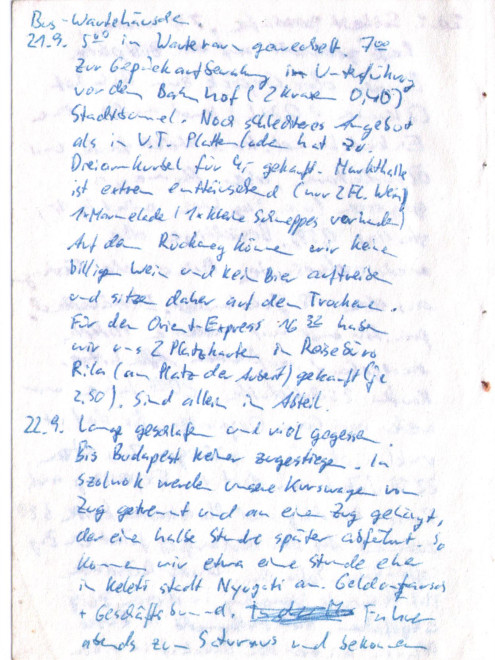 Bus-Wartehäuschen
21.9. 5⁰⁰ in Warteraum gewechselt. 7⁰⁰
zur Gepäckaufbewahrung im Unterführung
vor dem Bahnhof (2 Kraxen 0,40)
Stadtbummel. Noch schlechteres Angebot
als in V.T. Plattenladen hat zu.
Dreiarmkurbel für 4,- gekauft. Markthalle
ist extrem enttäuschend (nur 2 Fl. Wein,
1x Marmelade, 1x kleine Schnappes vorhanden)
Auf dem Rückweg können wir keine
billigen Wein und kein Bier auftreiben
und sitzen daher auf dem Trockenen.
Für den Orient-Express 16 haben
wir uns 2 Platzkarten in Reisebüro
Rila (am Platz der Arbeit) gekauft (je
2,50). Sind allein im Abteil.
22.9. Lange geschlafen und viel gegessen.
Bis Budapest keiner zugestiegen. In
Szolnok werden unsere Kurswagen vom
Zug getrennt und an einen Zug gehängt,
der eine halbe Stunde später abfährt. So
kommen wir etwa eine Stunde eher
in Keleti statt Nyugati an. Geldumtausch
+ Geschäftsbummel. Fahren
abends zum Saturnus und bekommen